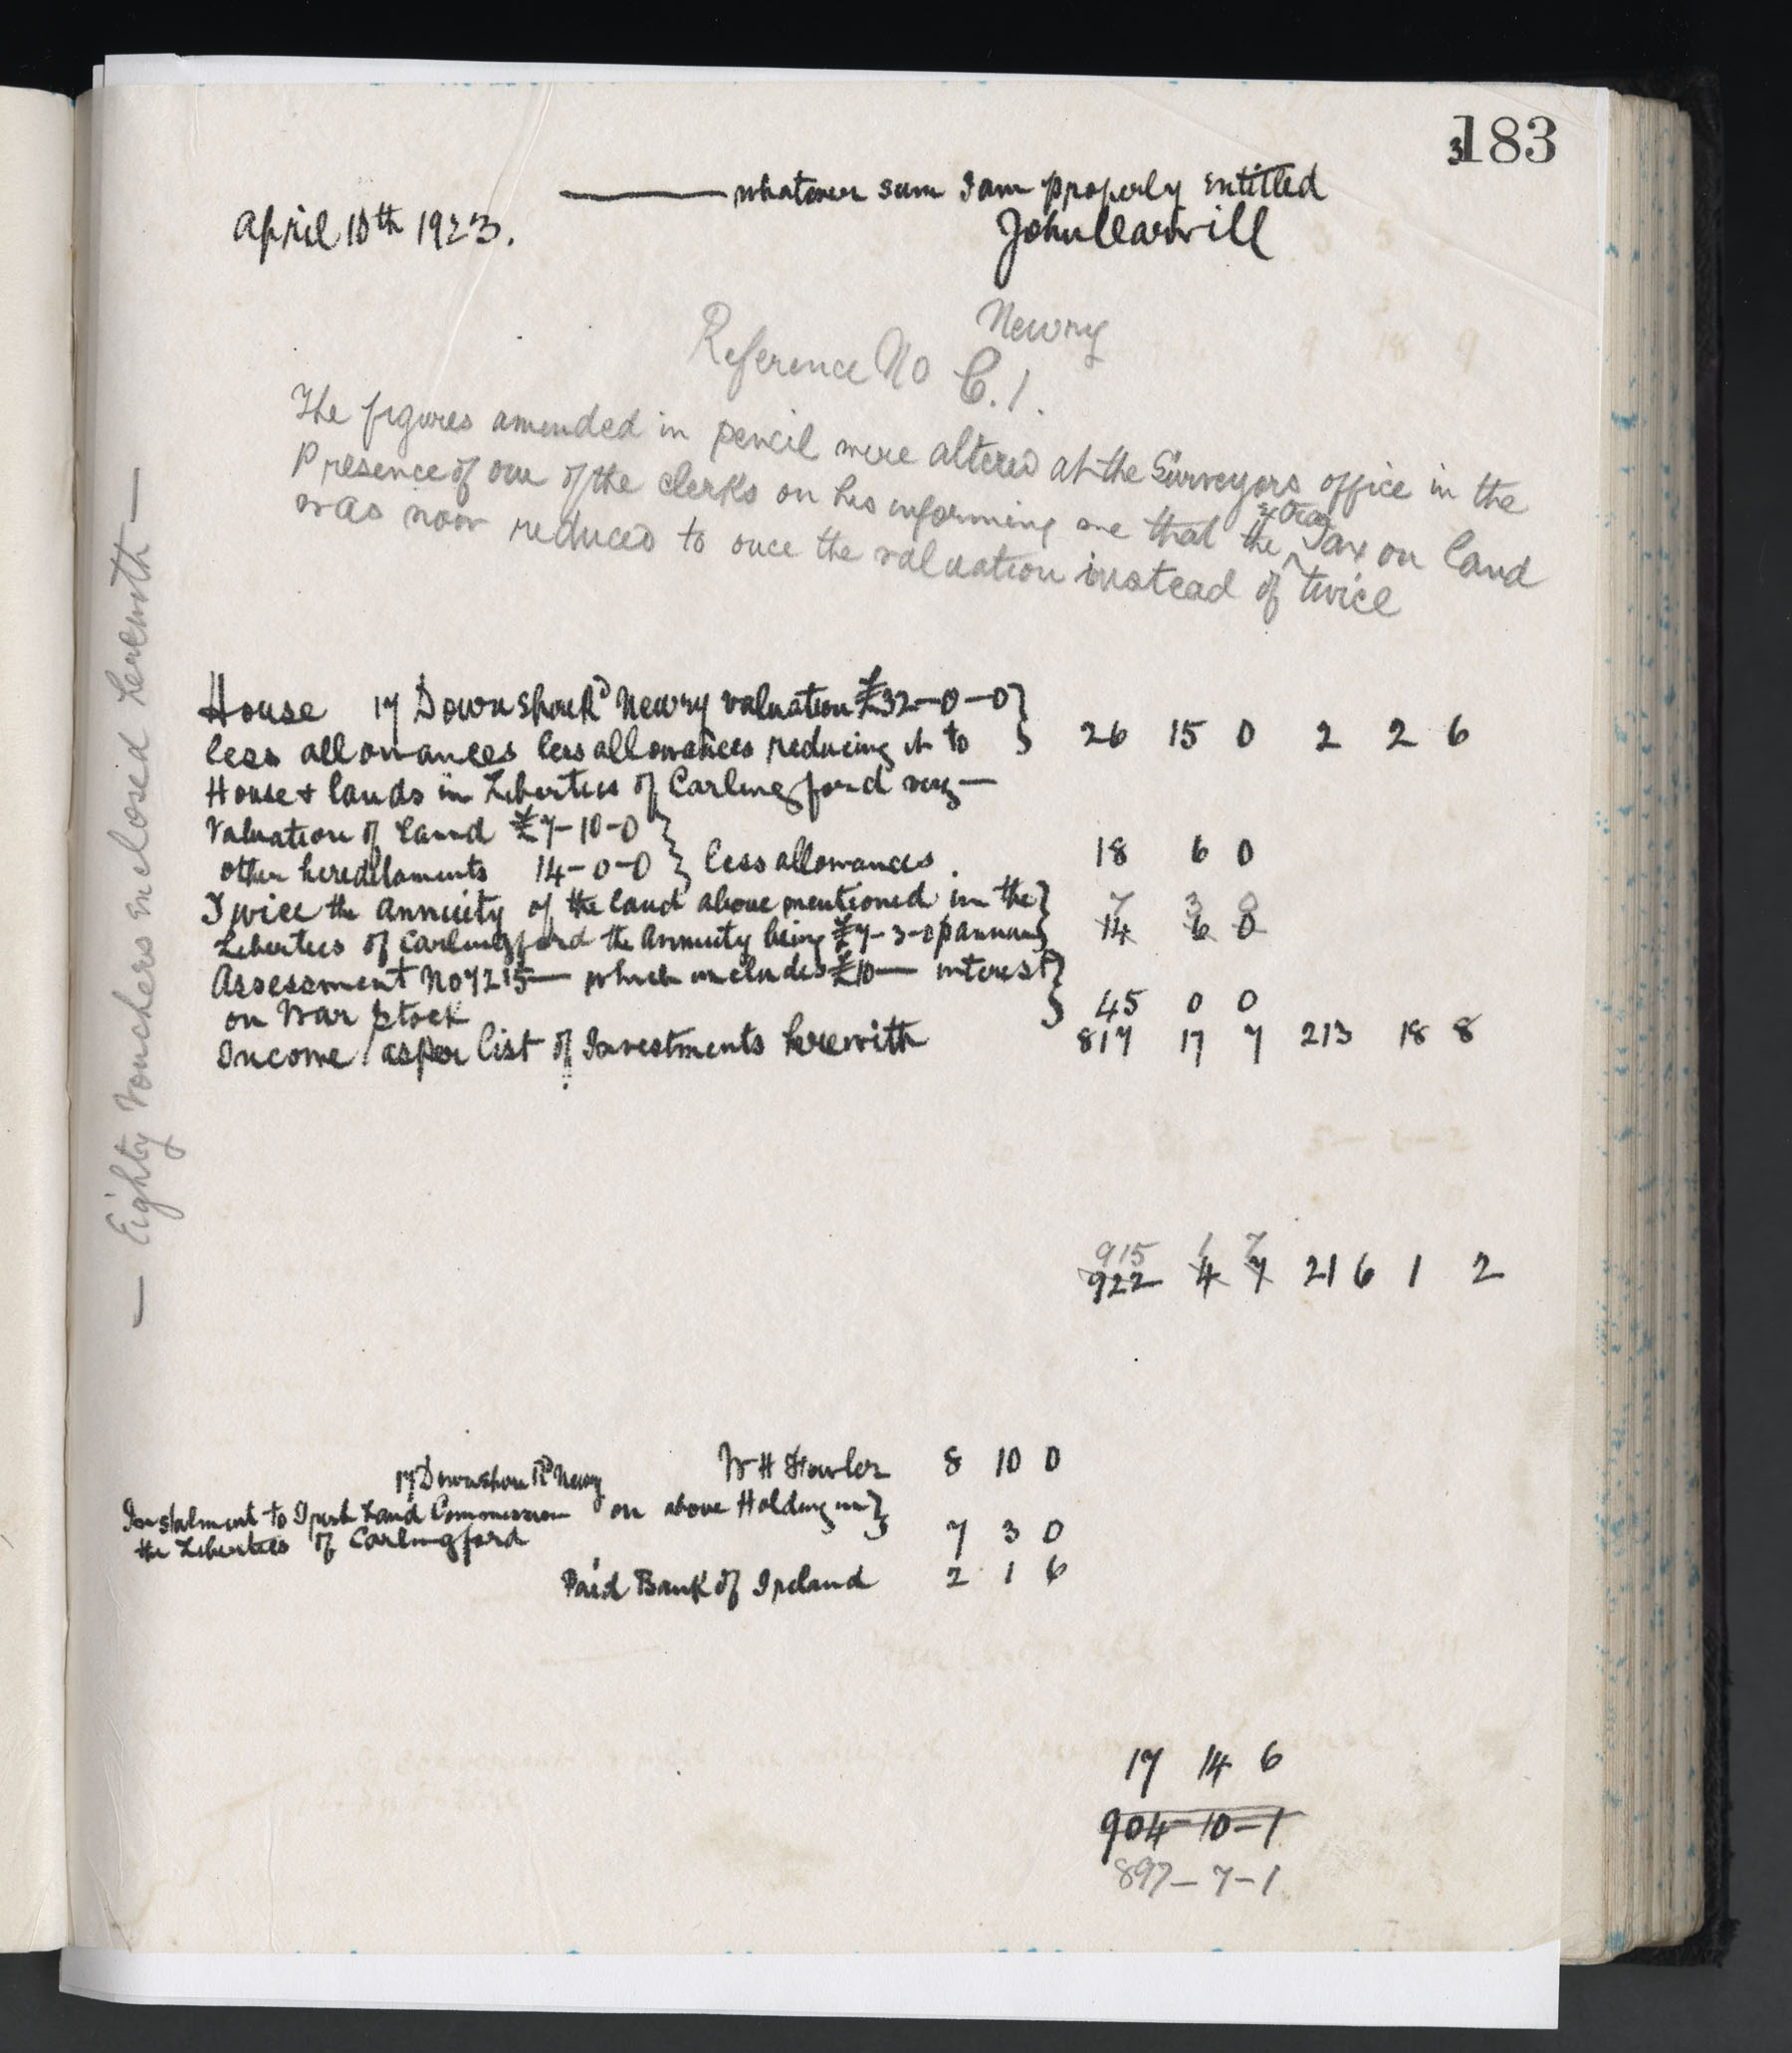 3183
——— whatever sum I am properly entitled
April 10th 1923.
John Carvill
Newry
Reference No C.1.
The figures amended in pencil were altered at the Surveyors office in the
Presence of one of the clerks on his informing me that the extra Tax on land
was now reduced to once the valuation instead of twice
— Eighty Vouchers Enclosed herewith —
House 17 Downshire Rd Newry valuation £32-0-0 }
less allowances less allowances reducing it to } 26 15 0 2 2 6
House & lands in Liberties of Carlingford viz —
Valuation of Land £7-10-0 }
other hereditaments 14-0-0 } less allowances. 18 6 0
Twice the annuity of the land above mentioned in the } 7 3 0
Liberties of Carlingford the Annuity being £7-3-0 p annum } 14 6 0
Assessment No 7215 — which includes £10 — interest }
on War Stock } 45 0 0
Income as per list of Investments herewith 817 17 7 213 18 8
915 1 7
922 4 7 216 1 2
17 Downshire Rd Newry W H Fowler 8 10 0
Instalment to Irish Land Commission on above Holding in }
the Liberties of Carlingford } 7 3 0
Paid Bank of Ireland 2 1 6
17 14 6
904-10-1
897-7-1